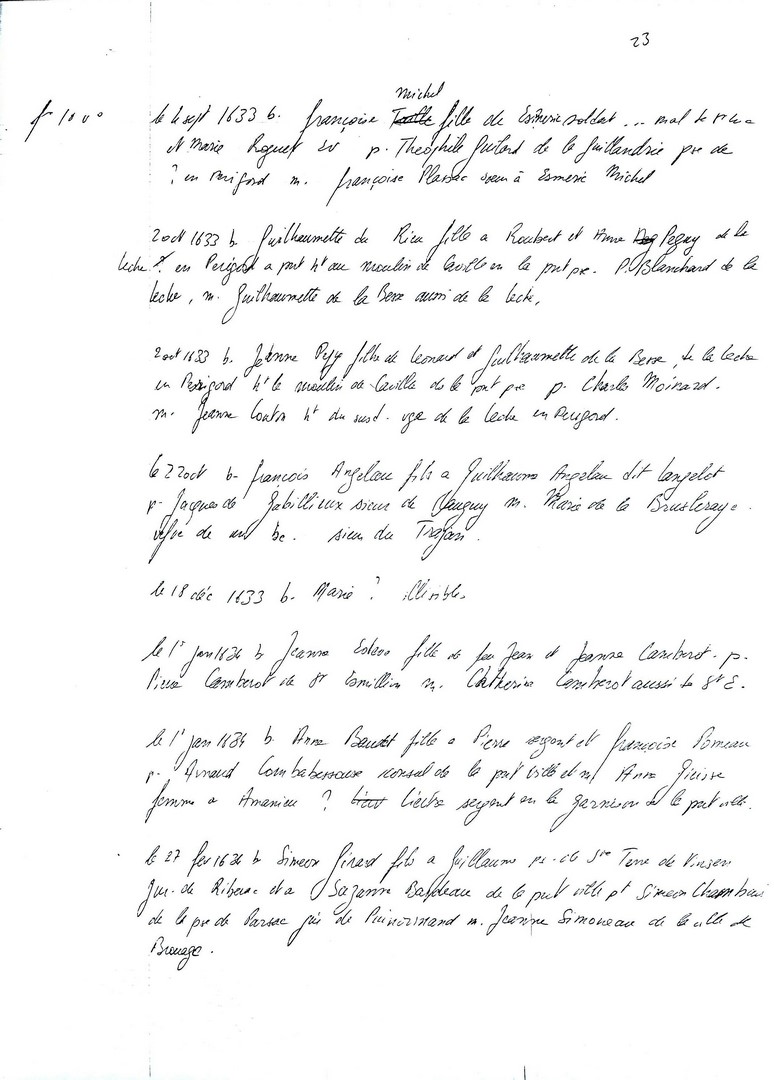 23
Michel
f° 10 v°
le 4 sept 1633 b. françoise fille de Esmerie soldat ... mal de
et Marie Roquet sv p. Théophile Guilard de la Guillandrie pre de
? en Perigord m. françoise Plassac soeur à Esmerie Michel
2 oct 1633 b. Guilhaumette du Rieu fille a Roubert et Anne Peguy de la
leche ? en Perigord a pnt ht au moulin de Caville en la pnt pre. P. Blanchard de la
leche, m. Guilhaumette de la Bere aussi de la leche,
2 oct 1633 b. Jehanne Pegy fille de Leonard et Guilhaumette de la Bere, de la leche
en Perigord ht le moulin de Caville de la pnt pre p. Charles Moinard.
m. Jeanne Couton ht du susd. de la leche en Perigord.
le 22 oct b. françois Angelau fils a Guilhaume Angelau dit Langelot
p. Jacques de Gabillieux sieur de m. Marie de la Brusleraye
vefve de un be. sieur du Trajan.
le 18 déc 1633 b. Marie ? illisible
le 1r jan 1634 b. Jeanne fille de feu Jean et Jeanne Camberot. p.
Pierre Camberot de St Emillion m. Catherine Camberot aussi de St E.
le 1r jan 1634 b. Anne Baudet fille a Pierre sergent et françoise Pomeau
p. Arnaud Combabessouse consul de la pnt ville et m. Anne
femme a Amanieu ? Liectre sergent en la garnison de la pnt ville.
le 27 fev 1634 b. Simeon Girard fils a Guillaume pr. de Ste Terre de
Jur. de Riberac et a Suzanne Bardeau de la pnt ville pt Simeon
de la pre de Parsac jur de Puinormand m. Jeanne Simoneau de la ville de
Brouage.